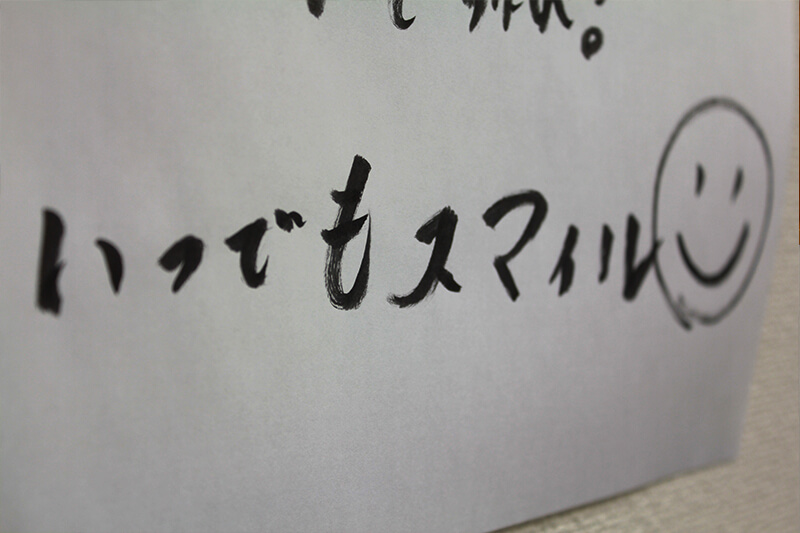 いつでもスマイル